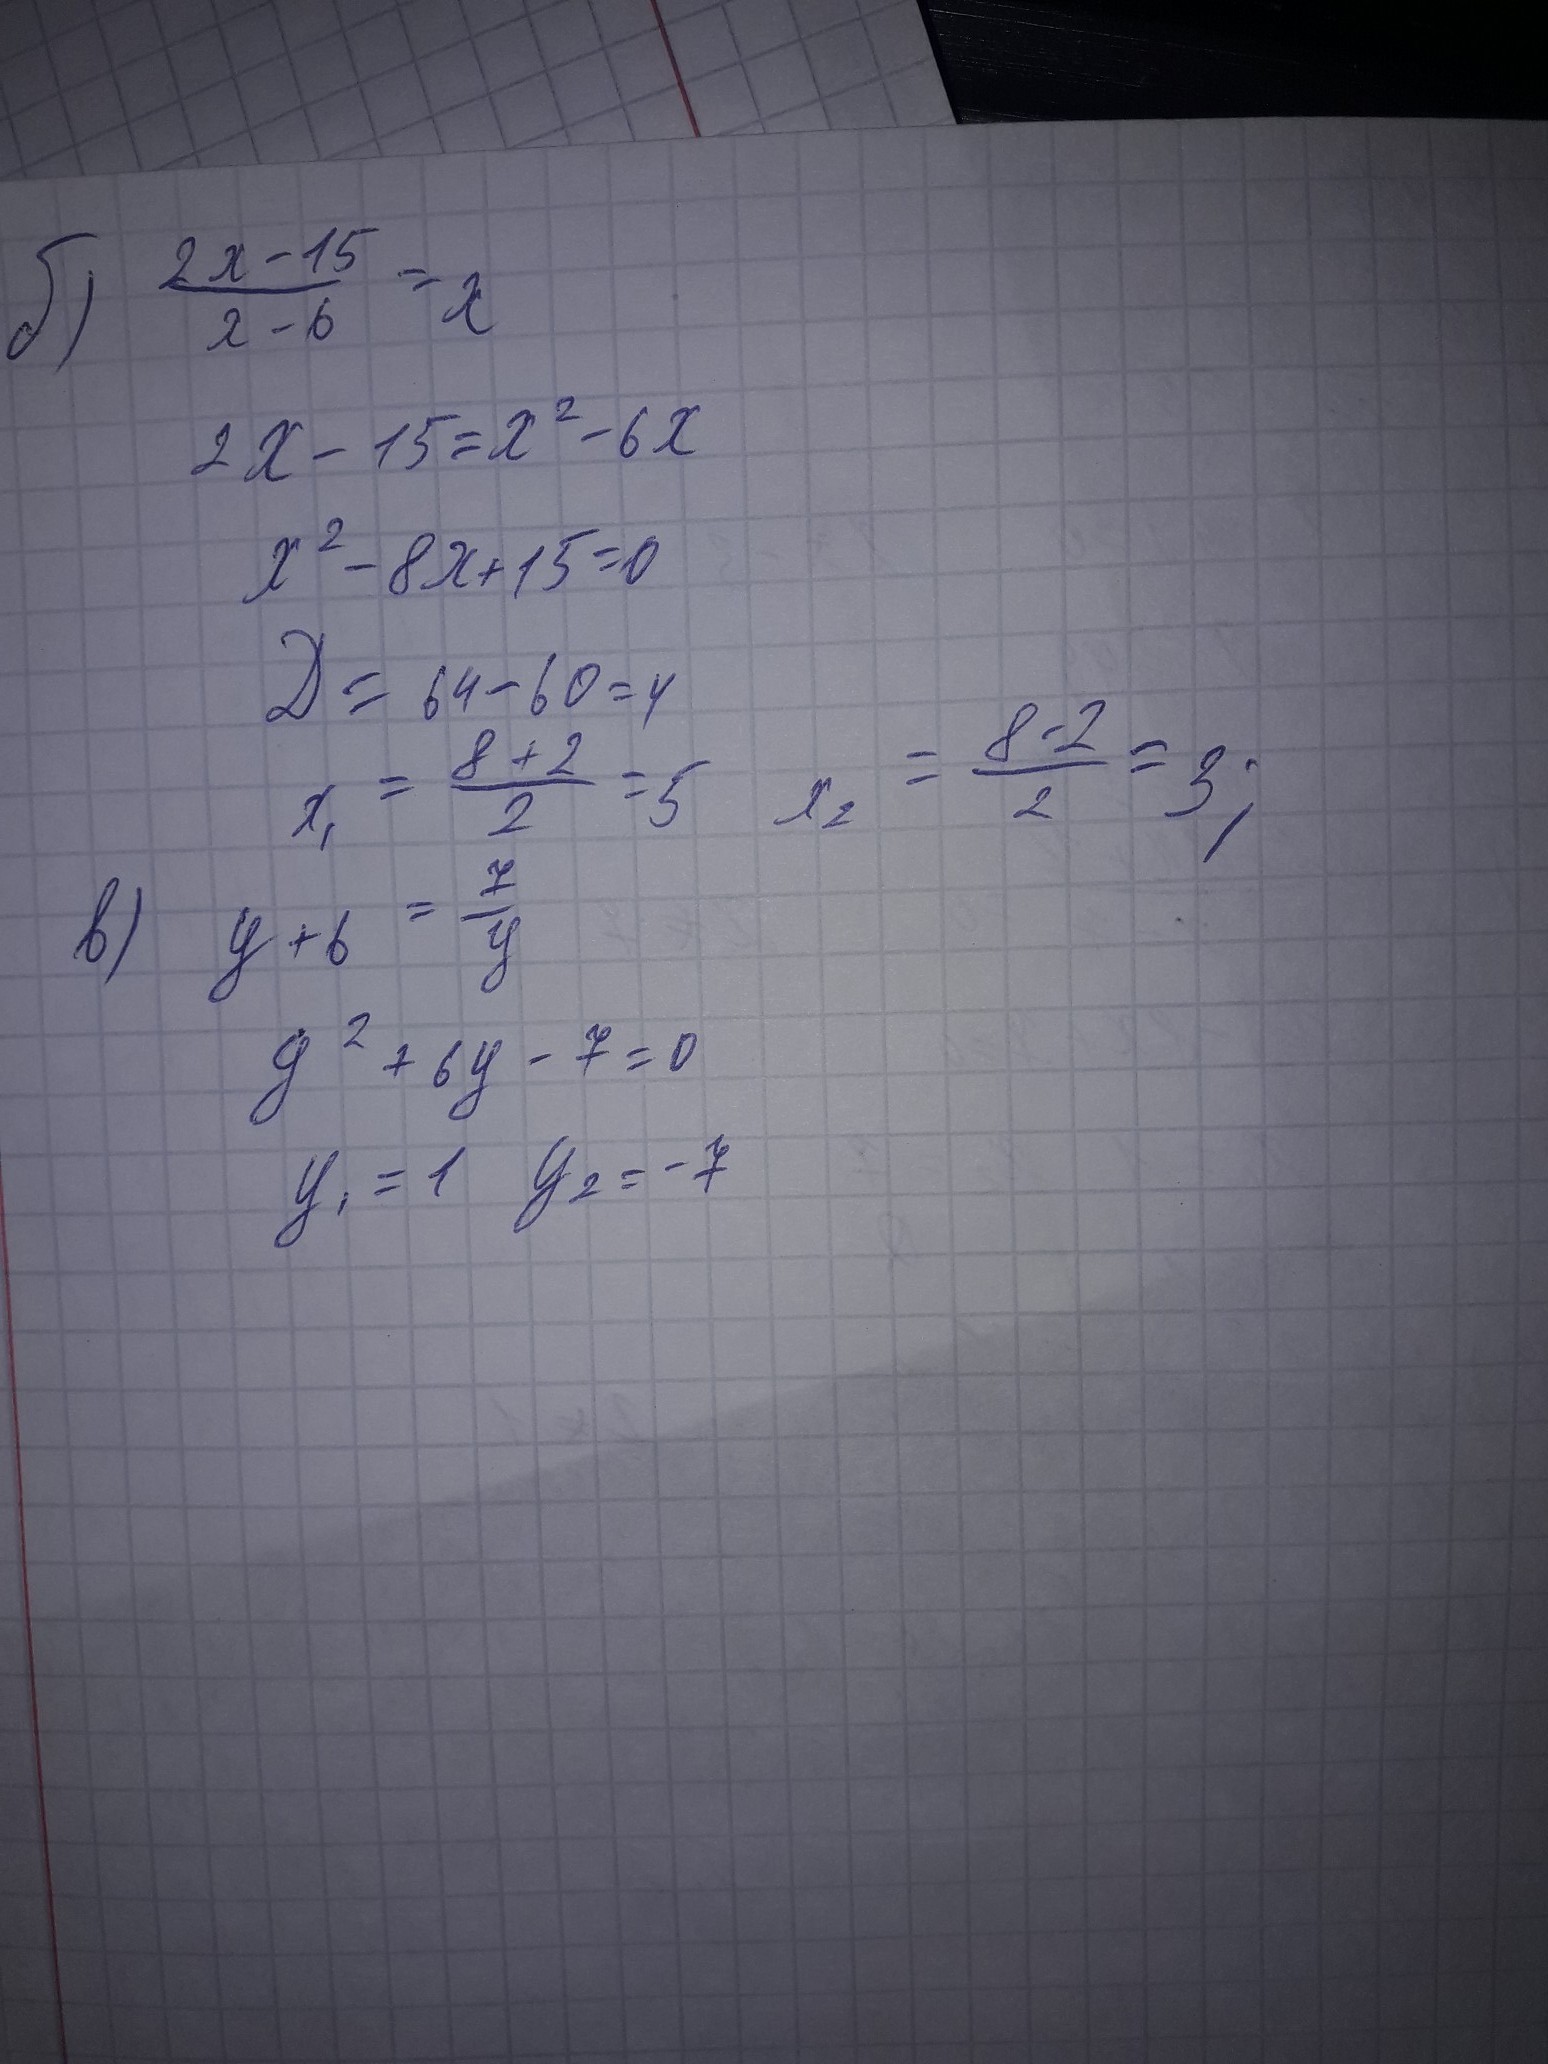 б) (2x-15)/(x-6) = x
2x - 15 = x² - 6x
x² - 8x + 15 = 0
D = 64 - 60 = 4
x₁ = (8+2)/2 = 5 x₂ = (8-2)/2 = 3;
в) y + 6 = 7/y
y² + 6y - 7 = 0
y₁ = 1 y₂ = -7